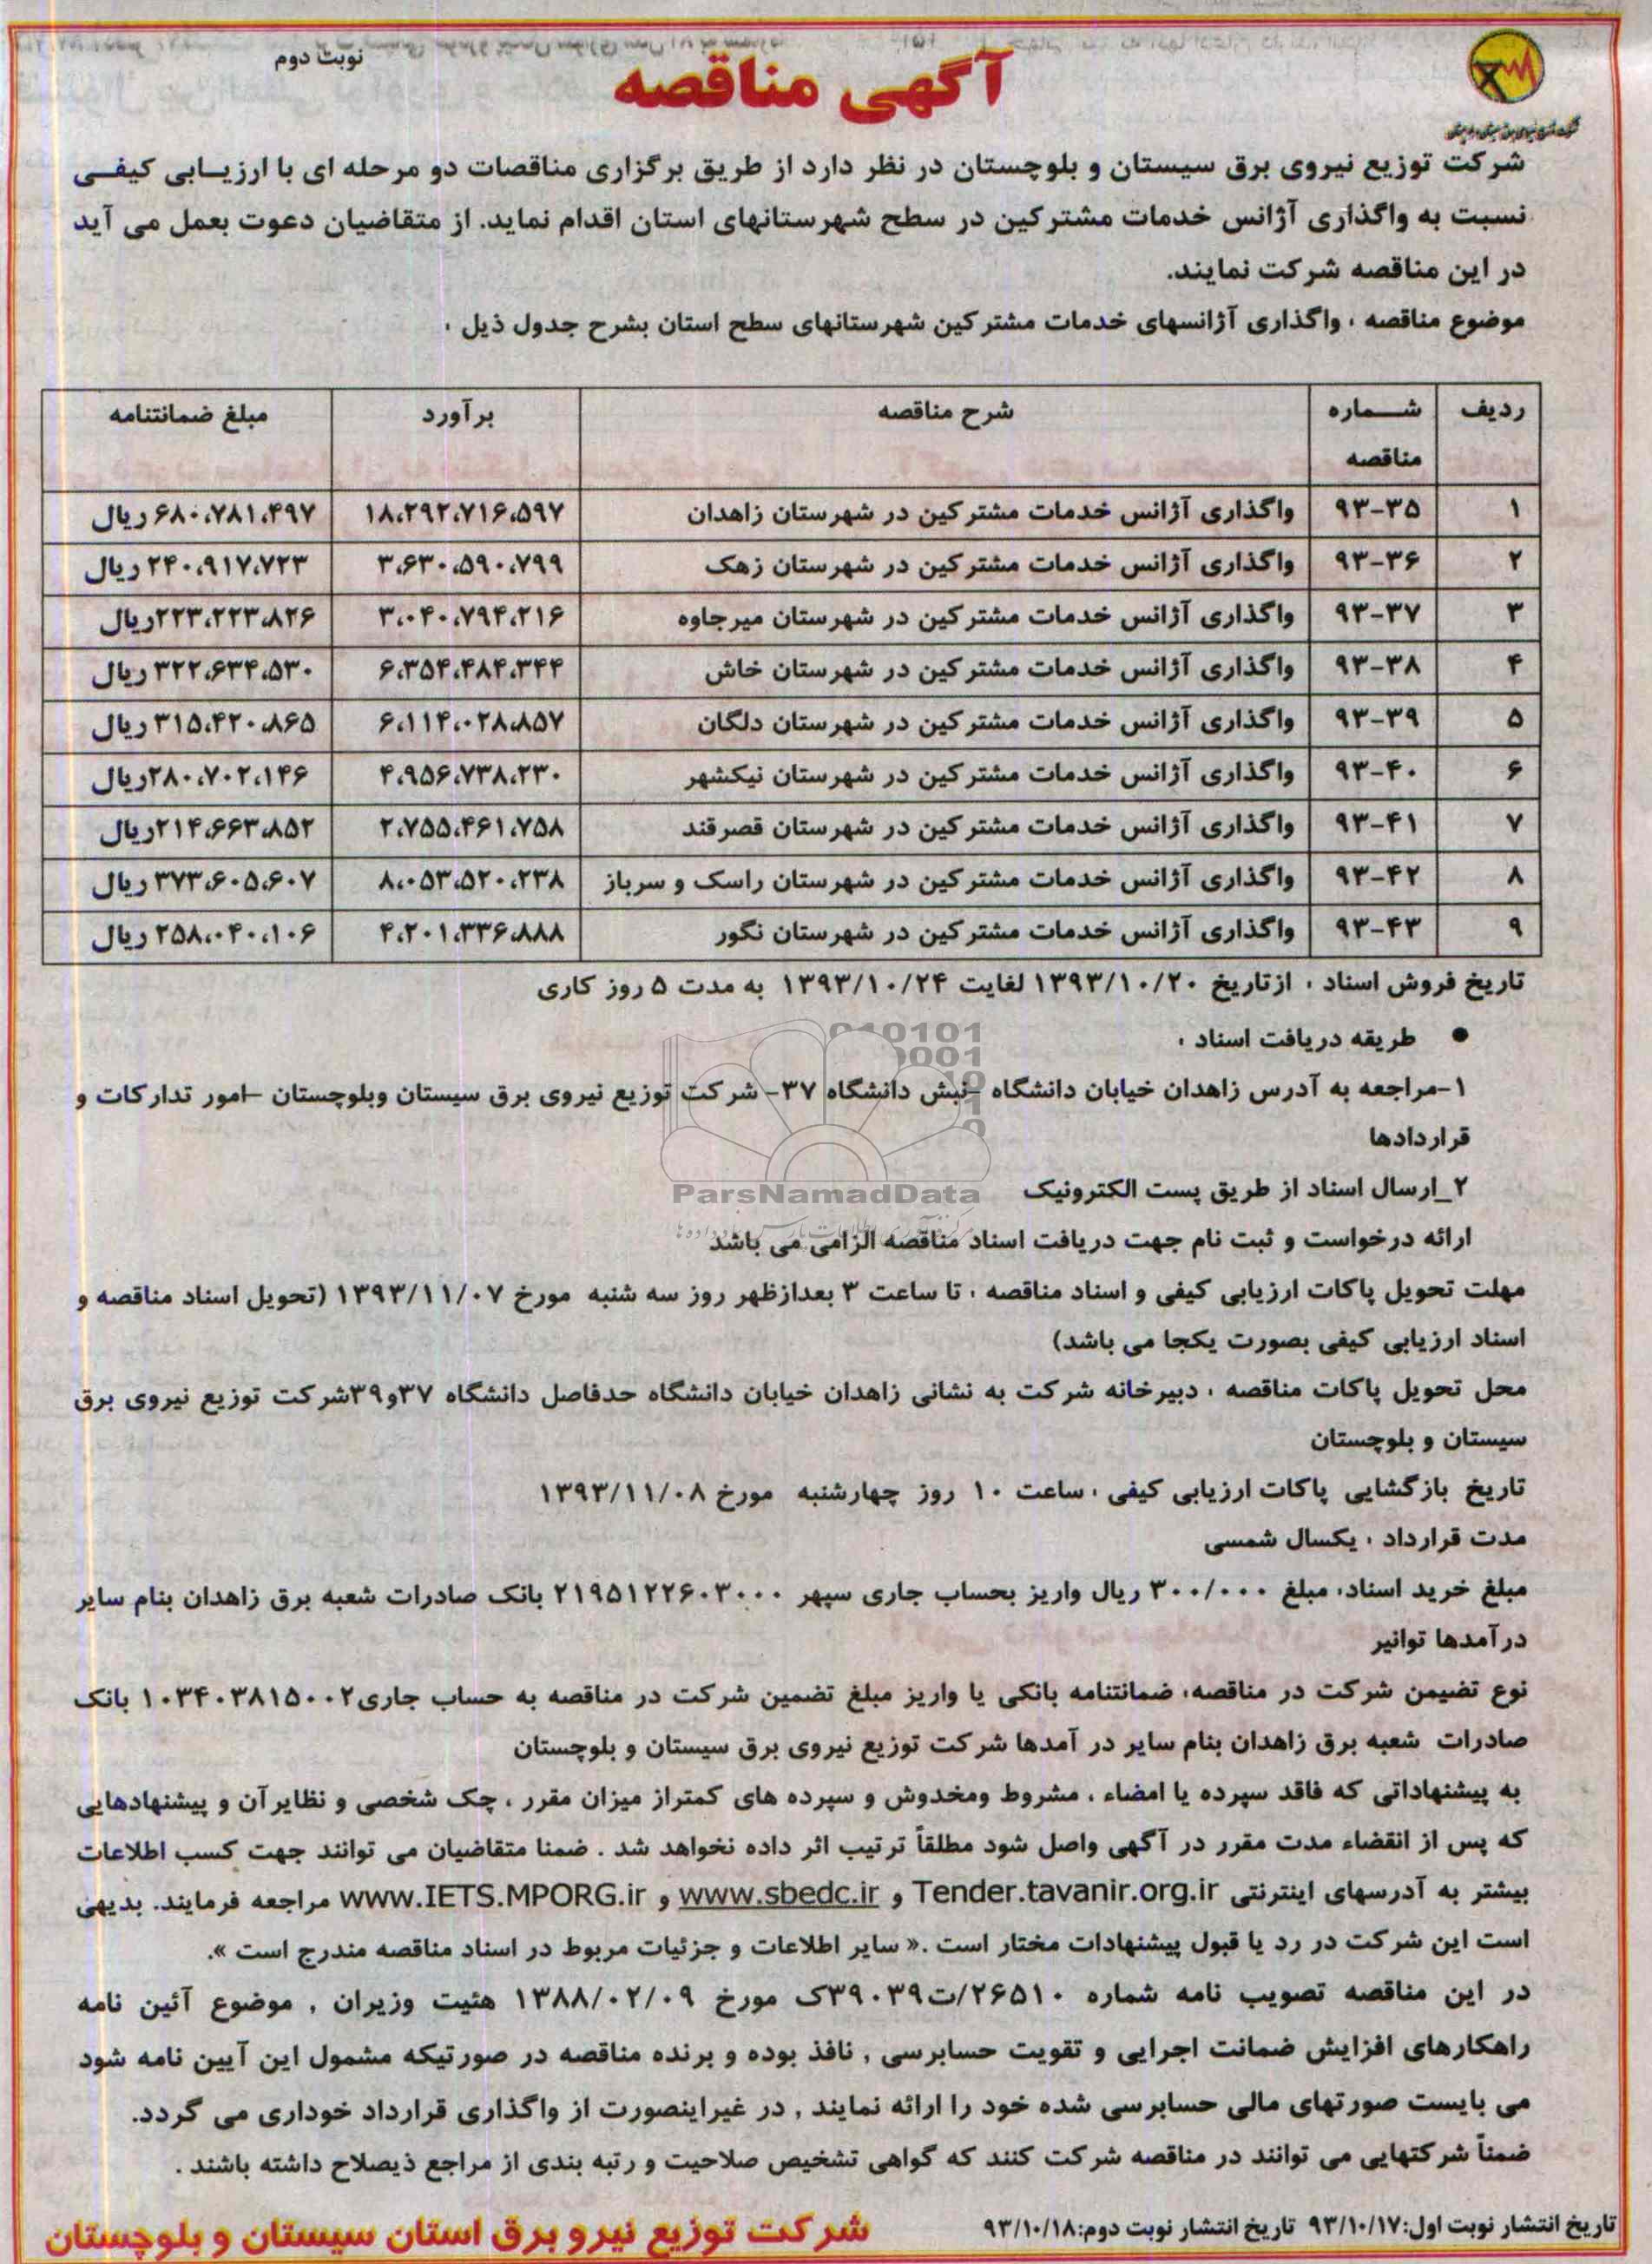 نوبت دوم
آگهی مناقصه
شرکت توزیع نیروی برق سیستان و بلوچستان در نظر دارد از طریق برگزاری مناقصات دو مرحله ای با ارزیــابی کیفــی
نسبت به واگذاری آژانس خدمات مشترکین در سطح شهرستانهای استان اقدام نماید. از متقاضیان دعوت بعمل می آید
در این مناقصه شرکت نمایند.
موضوع مناقصه : واگذاری آژانسهای خدمات مشترکین شهرستانهای سطح استان بشرح جدول ذیل :
ردیف | شـــماره مناقصه | شرح مناقصه | برآورد | مبلغ ضمانتنامه
۱ | ۹۳-۳۵ | واگذاری آژانس خدمات مشترکین در شهرستان زاهدان | ۱۸،۲۹۲،۷۱۶،۵۹۷ | ۶۸۰،۷۸۱،۴۹۷ ریال
۲ | ۹۳-۳۶ | واگذاری آژانس خدمات مشترکین در شهرستان زهک | ۳،۶۳۰،۵۹۰،۷۹۹ | ۲۴۰،۹۱۷،۷۲۳ ریال
۳ | ۹۳-۳۷ | واگذاری آژانس خدمات مشترکین در شهرستان میرجاوه | ۳،۰۴۰،۷۹۴،۲۱۶ | ۲۲۳،۲۲۳،۸۲۶ریال
۴ | ۹۳-۳۸ | واگذاری آژانس خدمات مشترکین در شهرستان خاش | ۶،۳۵۴،۴۸۴،۳۴۴ | ۳۲۲،۶۳۴،۵۳۰ ریال
۵ | ۹۳-۳۹ | واگذاری آژانس خدمات مشترکین در شهرستان دلگان | ۶،۱۱۴،۰۲۸،۸۵۷ | ۳۱۵،۴۲۰،۸۶۵ ریال
۶ | ۹۳-۴۰ | واگذاری آژانس خدمات مشترکین در شهرستان نیکشهر | ۴،۹۵۶،۷۳۸،۲۳۰ | ۲۸۰،۷۰۲،۱۴۶ریال
۷ | ۹۳-۴۱ | واگذاری آژانس خدمات مشترکین در شهرستان قصرقند | ۲،۷۵۵،۴۶۱،۷۵۸ | ۲۱۴،۶۶۳،۸۵۲ریال
۸ | ۹۳-۴۲ | واگذاری آژانس خدمات مشترکین در شهرستان راسک و سرباز | ۸،۰۵۳،۵۲۰،۲۳۸ | ۳۷۳،۶۰۵،۶۰۷ ریال
۹ | ۹۳-۴۳ | واگذاری آژانس خدمات مشترکین در شهرستان نگور | ۴،۲۰۱،۳۳۶،۸۸۸ | ۲۵۸،۰۴۰،۱۰۶ ریال
تاریخ فروش اسناد : ازتاریخ ۱۳۹۳/۱۰/۲۰ لغایت ۱۳۹۳/۱۰/۲۴ به مدت ۵ روز کاری
• طریقه دریافت اسناد :
۱-مراجعه به آدرس زاهدان خیابان دانشگاه –نبش دانشگاه ۳۷- شرکت توزیع نیروی برق سیستان وبلوچستان –امور تدارکات و
قراردادها
۲_ارسال اسناد از طریق پست الکترونیک
ParsNamadData
ارائه درخواست و ثبت نام جهت دریافت اسناد مناقصه الزامی می باشد
مهلت تحویل پاکات ارزیابی کیفی و اسناد مناقصه : تا ساعت ۳ بعدازظهر روز سه شنبه مورخ ۱۳۹۳/۱۱/۰۷ (تحویل اسناد مناقصه و
اسناد ارزیابی کیفی بصورت یکجا می باشد)
محل تحویل پاکات مناقصه : دبیرخانه شرکت به نشانی زاهدان خیابان دانشگاه حدفاصل دانشگاه ۳۷و۳۹شرکت توزیع نیروی برق
سیستان و بلوچستان
تاریخ بازگشایی پاکات ارزیابی کیفی : ساعت ۱۰ روز چهارشنبه مورخ ۱۳۹۳/۱۱/۰۸
مدت قرارداد : یکسال شمسی
مبلغ خرید اسناد: مبلغ ۳۰۰/۰۰۰ ریال واریز بحساب جاری سپهر ۲۱۹۵۱۲۲۶۰۳۰۰۰ بانک صادرات شعبه برق زاهدان بنام سایر
درآمدها توانیر
نوع تضیمن شرکت در مناقصه: ضمانتنامه بانکی یا واریز مبلغ تضمین شرکت در مناقصه به حساب جاری۱۰۳۴۰۳۸۱۵۰۰۲ بانک
صادرات شعبه برق زاهدان بنام سایر در آمدها شرکت توزیع نیروی برق سیستان و بلوچستان
به پیشنهاداتی که فاقد سپرده یا امضاء ، مشروط ومخدوش و سپرده های کمتراز میزان مقرر ، چک شخصی و نظایرآن و پیشنهادهایی
که پس از انقضاء مدت مقرر در آگهی واصل شود مطلقاً ترتیب اثر داده نخواهد شد . ضمنا متقاضیان می توانند جهت کسب اطلاعات
بیشتر به آدرسهای اینترنتی Tender.tavanir.org.ir و www.sbedc.ir و www.IETS.MPORG.ir مراجعه فرمایند. بدیهی
است این شرکت در رد یا قبول پیشنهادات مختار است .« سایر اطلاعات و جزئیات مربوط در اسناد مناقصه مندرج است ».
در این مناقصه تصویب نامه شماره ۲۶۵۱۰/ت۳۹۰۳۹ک مورخ ۱۳۸۸/۰۲/۰۹ هئیت وزیران , موضوع آئین نامه
راهکارهای افزایش ضمانت اجرایی و تقویت حسابرسی , نافذ بوده و برنده مناقصه در صورتیکه مشمول این آیین نامه شود
می بایست صورتهای مالی حسابرسی شده خود را ارائه نمایند , در غیراینصورت از واگذاری قرارداد خوداری می گردد.
ضمناً شرکتهایی می توانند در مناقصه شرکت کنند که گواهی تشخیص صلاحیت و رتبه بندی از مراجع ذیصلاح داشته باشند .
تاریخ انتشار نوبت اول:۹۳/۱۰/۱۷ تاریخ انتشار نوبت دوم:۹۳/۱۰/۱۸
شرکت توزیع نیرو برق استان سیستان و بلوچستان